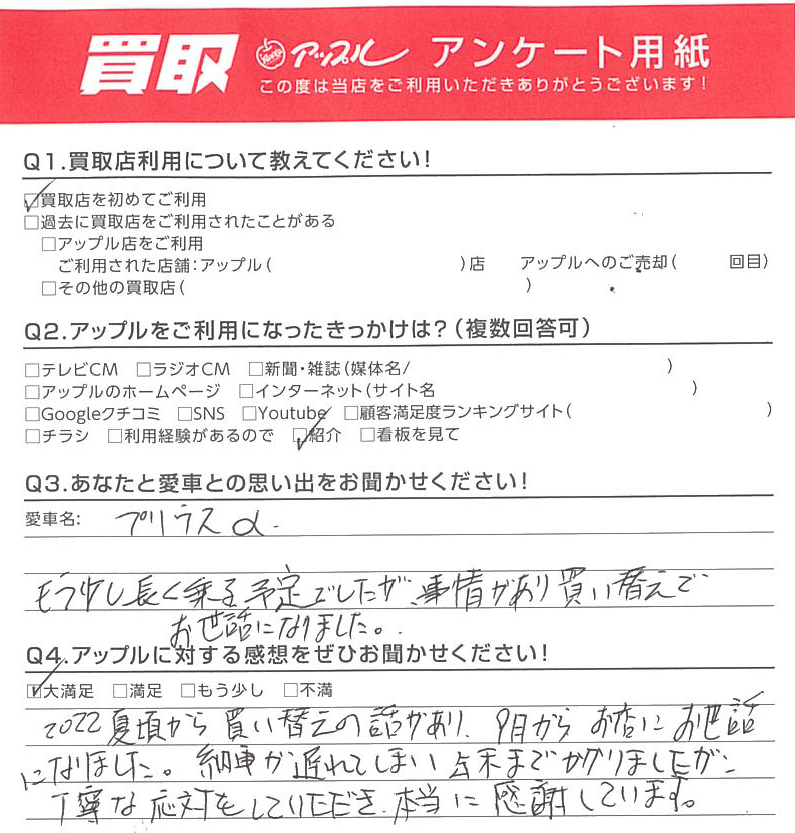 買取 アップル アンケート用紙
この度は当店をご利用いただきありがとうございます!
Q1.買取店利用について教えてください!
☑買取店を初めてご利用
□過去に買取店をご利用されたことがある
□アップル店をご利用
ご利用された店舗:アップル( )店 アップルへのご売却( 回目)
□その他の買取店( )
Q2.アップルをご利用になったきっかけは?(複数回答可)
□テレビCM □ラジオCM □新聞・雑誌(媒体名/ )
□アップルのホームページ □インターネット(サイト名 )
□Googleクチコミ □SNS □Youtube □顧客満足度ランキングサイト( )
□チラシ □利用経験があるので ☑紹介 □看板を見て
Q3.あなたと愛車との思い出をお聞かせください!
愛車名: プリウスα.
もう少し長く乗る予定でしたが、事情があり買い替えで
お世話になりました。
Q4.アップルに対する感想をぜひお聞かせください!
☑大満足 □満足 □もう少し □不満
2022夏頃から買い替えの話があり、9月からお店にお世話
になりました。納車が遅れてしまい までかかりましたが、
丁寧な応対をしていただき、本当に感謝しています。